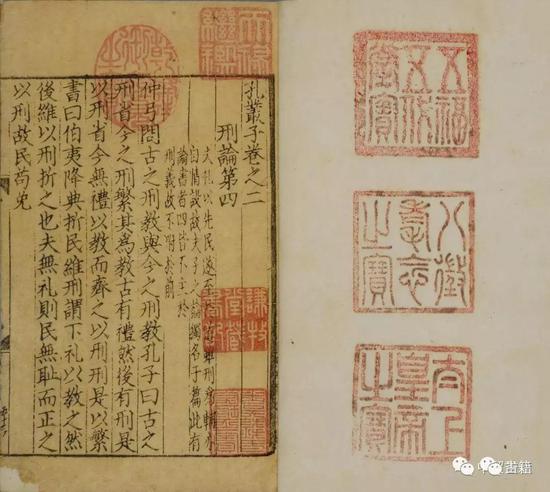 五福
五代
堂寶
八徵
耄念
之寶
太上
皇帝
之寶
天祿
繼鑑
孔叢子卷之二
刑論第四
論書者四皆不主於
刑義故不附於前
謙牧
堂藏
書記
仲弓問古之刑教與今之刑教孔子曰古之
刑省今之刑繁其為教古有禮然後有刑是
以刑省今無禮以教而齊之以刑刑是以繁
書曰伯夷降典折民維刑謂下礼以教之然
後維以刑折之也夫無礼則民無耻而正之
以刑故民苟免